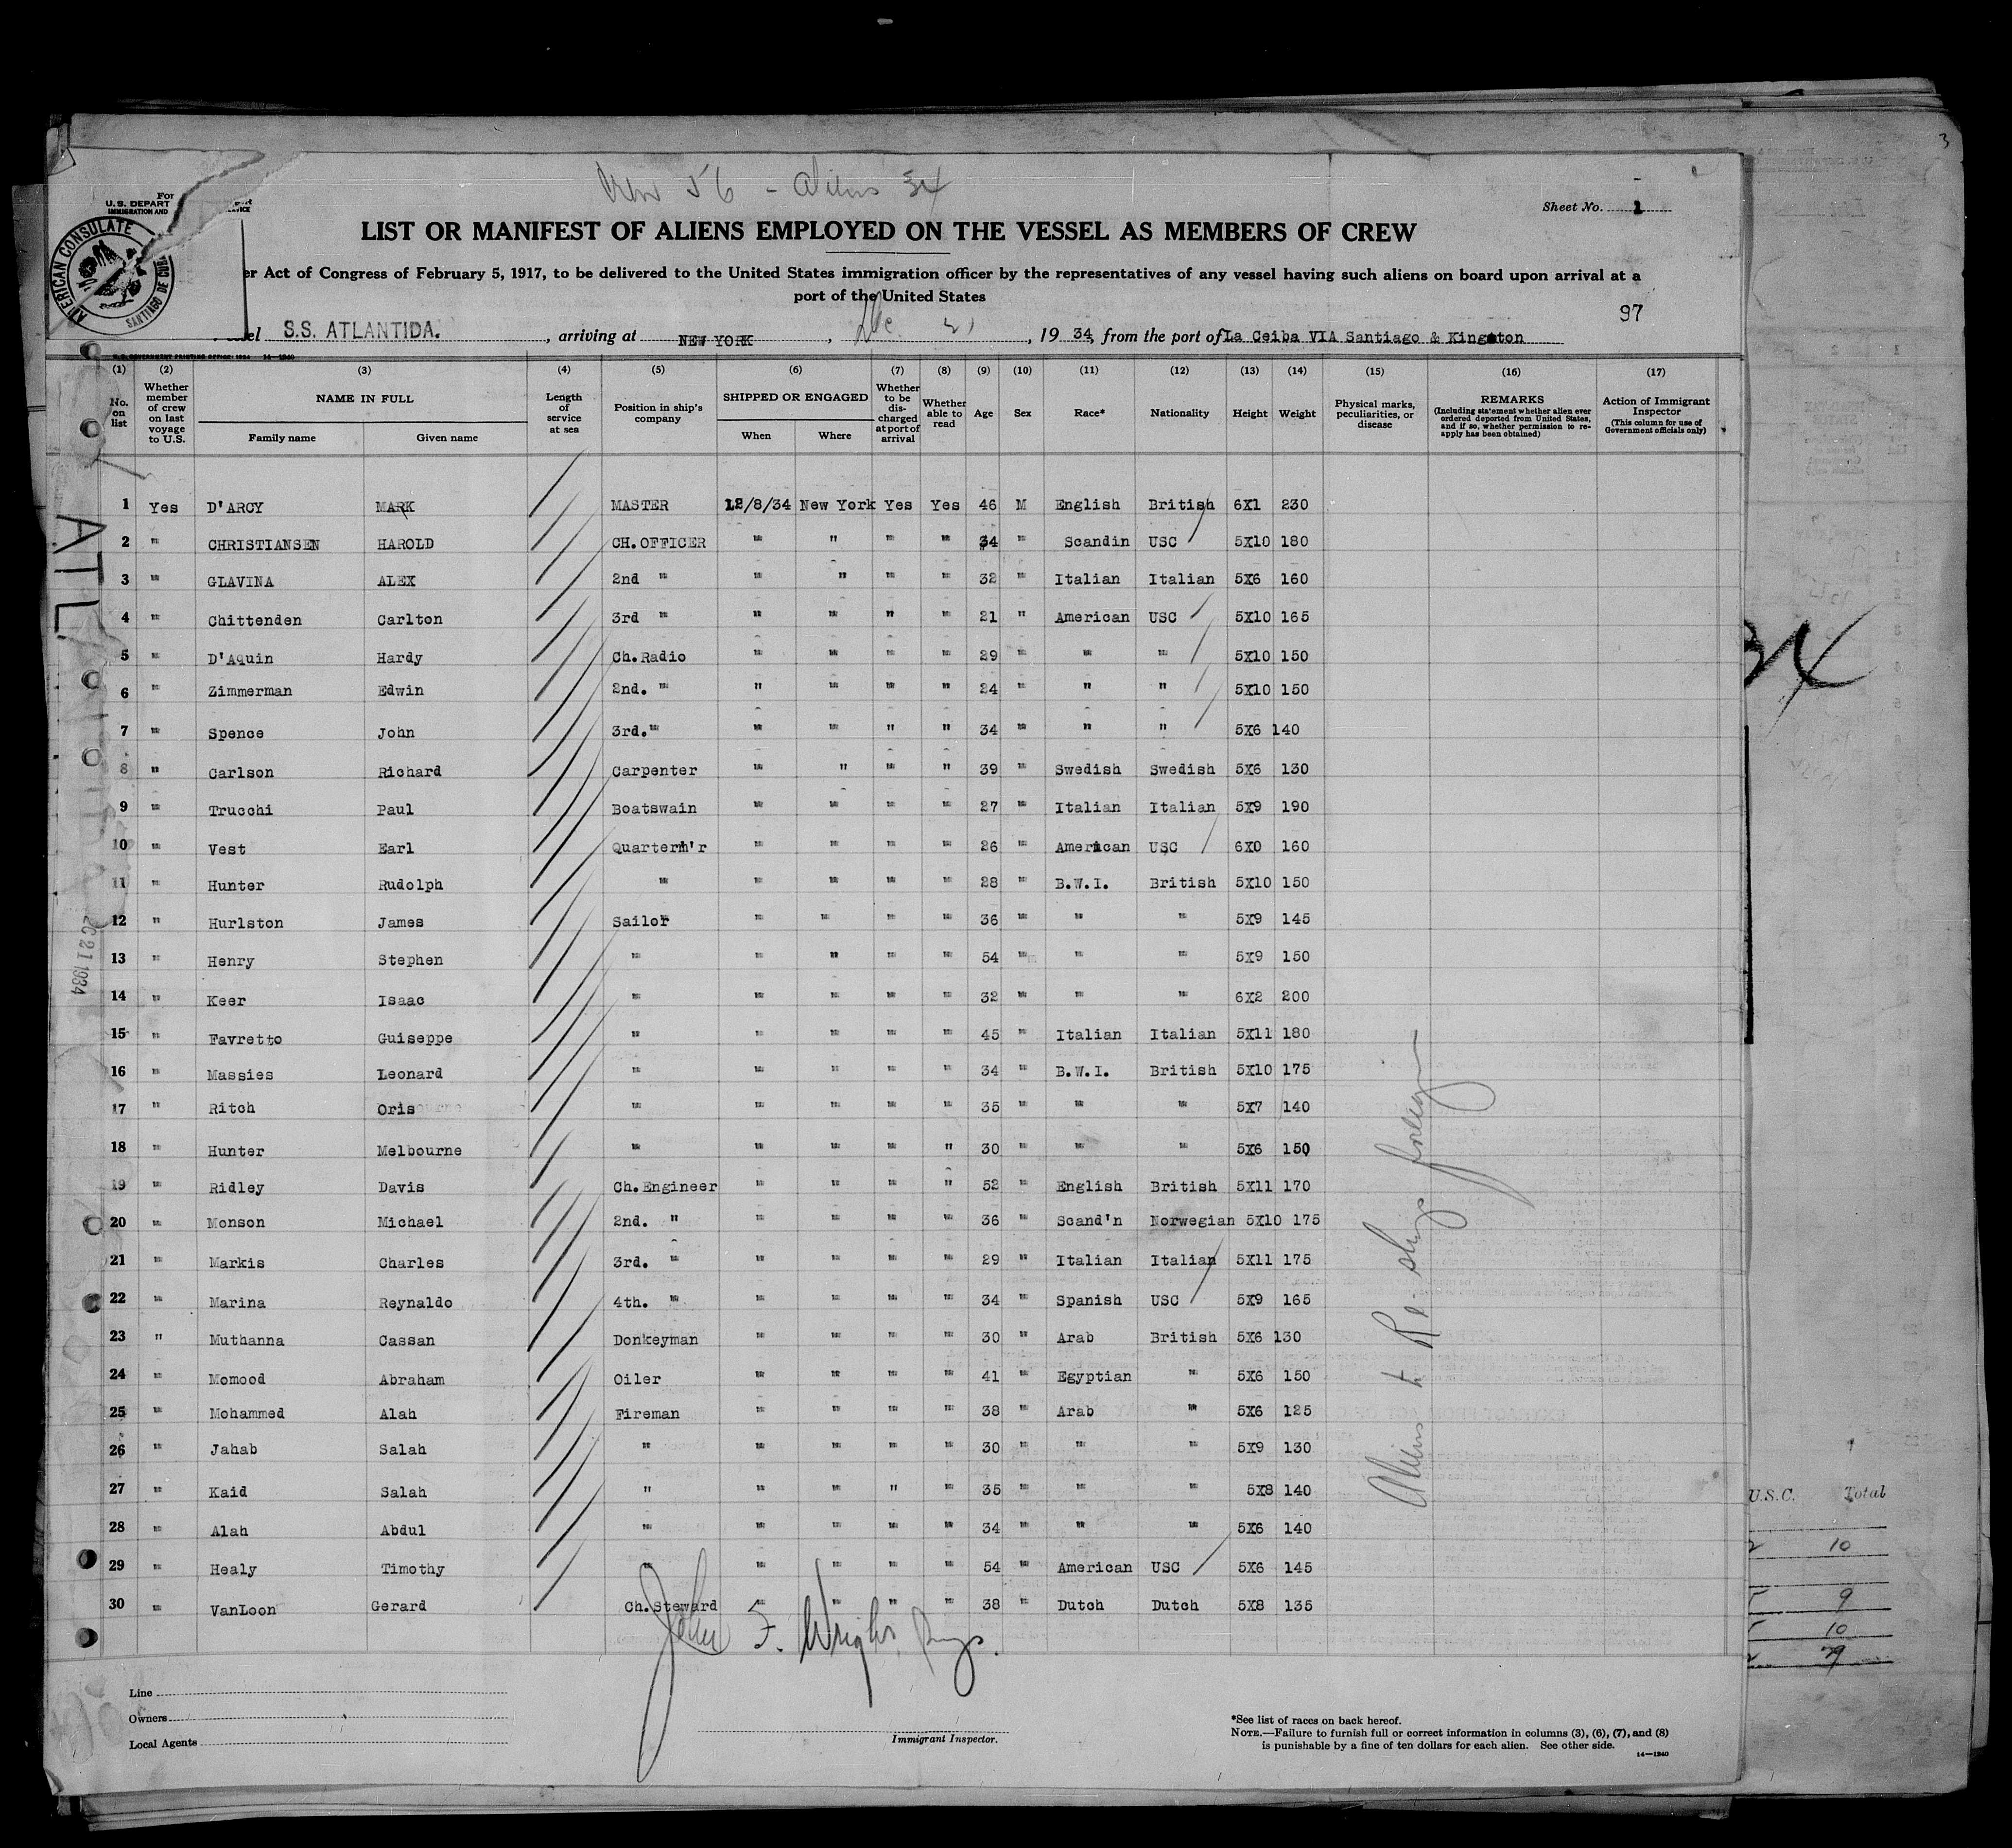 Crew 56 - Aliens 34
For
U.S. DEPART
IMMIGRATION AND
Sheet No. 1
AMERICAN CONSULATE
SANTIAGO DE
LIST OR MANIFEST OF ALIENS EMPLOYED ON THE VESSEL AS MEMBERS OF CREW
er Act of Congress of February 5, 1917, to be delivered to the United States immigration officer by the representatives of any vessel having such aliens on board upon arrival at a
port of the United States
97
el S.S. ATLANTIDA. , arriving at NEW YORK , Dec. 21 , 19 34, from the port of La Ceiba VIA Santiago & Kingston
U.S. GOVERNMENT PRINTING OFFICE: 1934 14-1240
(1) (2) (3) (4) (5) (6) (7) (8) (9) (10) (11) (12) (13) (14) (15) (16) (17)
No. on list Whether member of crew on last voyage to U.S. NAME IN FULL Family name Given name Length of service at sea Position in ship's company SHIPPED OR ENGAGED When Where Whether to be discharged at port of arrival Whether able to read Age Sex Race* Nationality Height Weight Physical marks, peculiarities, or disease REMARKS (Including statement whether alien ever ordered deported from United States, and if so, whether permission to reapply has been obtained) Action of Immigrant Inspector (This column for use of Government officials only)
1 Yes D'ARCY MARK MASTER 12/8/34 New York Yes Yes 46 M English British 6X1 230
2 " CHRISTIANSEN HAROLD CH.OFFICER " " " " 34 " Scandin USC 5X10 180
3 " GLAVINA ALEX 2nd " " " " " 32 " Italian Italian 5X6 160
4 " Chittenden Carlton 3rd " " " " " 21 " American USC 5X10 165
5 " D'Aquin Hardy Ch.Radio " " " " 29 " " " 5X10 150
6 " Zimmerman Edwin 2nd. " " " " " 24 " " " 5X10 150
7 " Spence John 3rd." " " " " 34 " " " 5X6 140
8 " Carlson Richard Carpenter " " " " 39 " Swedish Swedish 5X6 130
9 " Trucchi Paul Boatswain " " " " 27 " Italian Italian 5X9 190
10 " Vest Earl Quarterm'r " " " " 26 " American USC 6X0 160
11 " Hunter Rudolph " " " " " 28 " B.W.I. British 5X10 150
12 " Hurlston James Sailor " " " " 36 " " " 5X9 145
13 " Henry Stephen " " " " " 54 " " " 5X9 150
14 " Keer Isaac " " " " " 32 " " " 6X2 200
15 " Favretto Guiseppe " " " " " 45 " Italian Italian 5X11 180
16 " Massies Leonard " " " " " 34 " B.W.I. British 5X10 175
17 " Ritch Oris " " " " " 35 " " " 5X7 140
18 " Hunter Melbourne " " " " " 30 " " " 5X6 150
19 " Ridley Davis Ch.Engineer " " " " 52 " English British 5X11 170
20 " Monson Michael 2nd. " " " " " 36 " Scand'n Norwegian 5X10 175
21 " Markis Charles 3rd. " " " " " 29 " Italian Italian 5X11 175
22 " Marina Reynaldo 4th. " " " " " 34 " Spanish USC 5X9 165
23 " Muthanna Cassan Donkeyman " " " " 30 " Arab British 5X6 130
24 " Momood Abraham Oiler " " " " 41 " Egyptian " 5X6 150
25 " Mohammed Alah Fireman " " " " 38 " Arab " 5X6 125
26 " Jahab Salah " " " " " 30 " " " 5X9 130
27 " Kaid Salah " " " " " 35 " " " 5X8 140
28 " Alah Abdul " " " " " 34 " " " 5X6 140
29 " Healy Timothy " " " " " 54 " American USC 5X6 145
30 " VanLoon Gerard Ch.Steward " " " " 38 " Dutch Dutch 5X8 135
Aliens to Re-ship foreign
John F. Wright
Line
Owners
Local Agents
Immigrant Inspector.
*See list of races on back hereof.
NOTE.—Failure to furnish full or correct information in columns (3), (6), (7), and (8)
is punishable by a fine of ten dollars for each alien. See other side.
14-1240
ATL
21 1934
3
34
U.S.C. Total
10
9
10
29